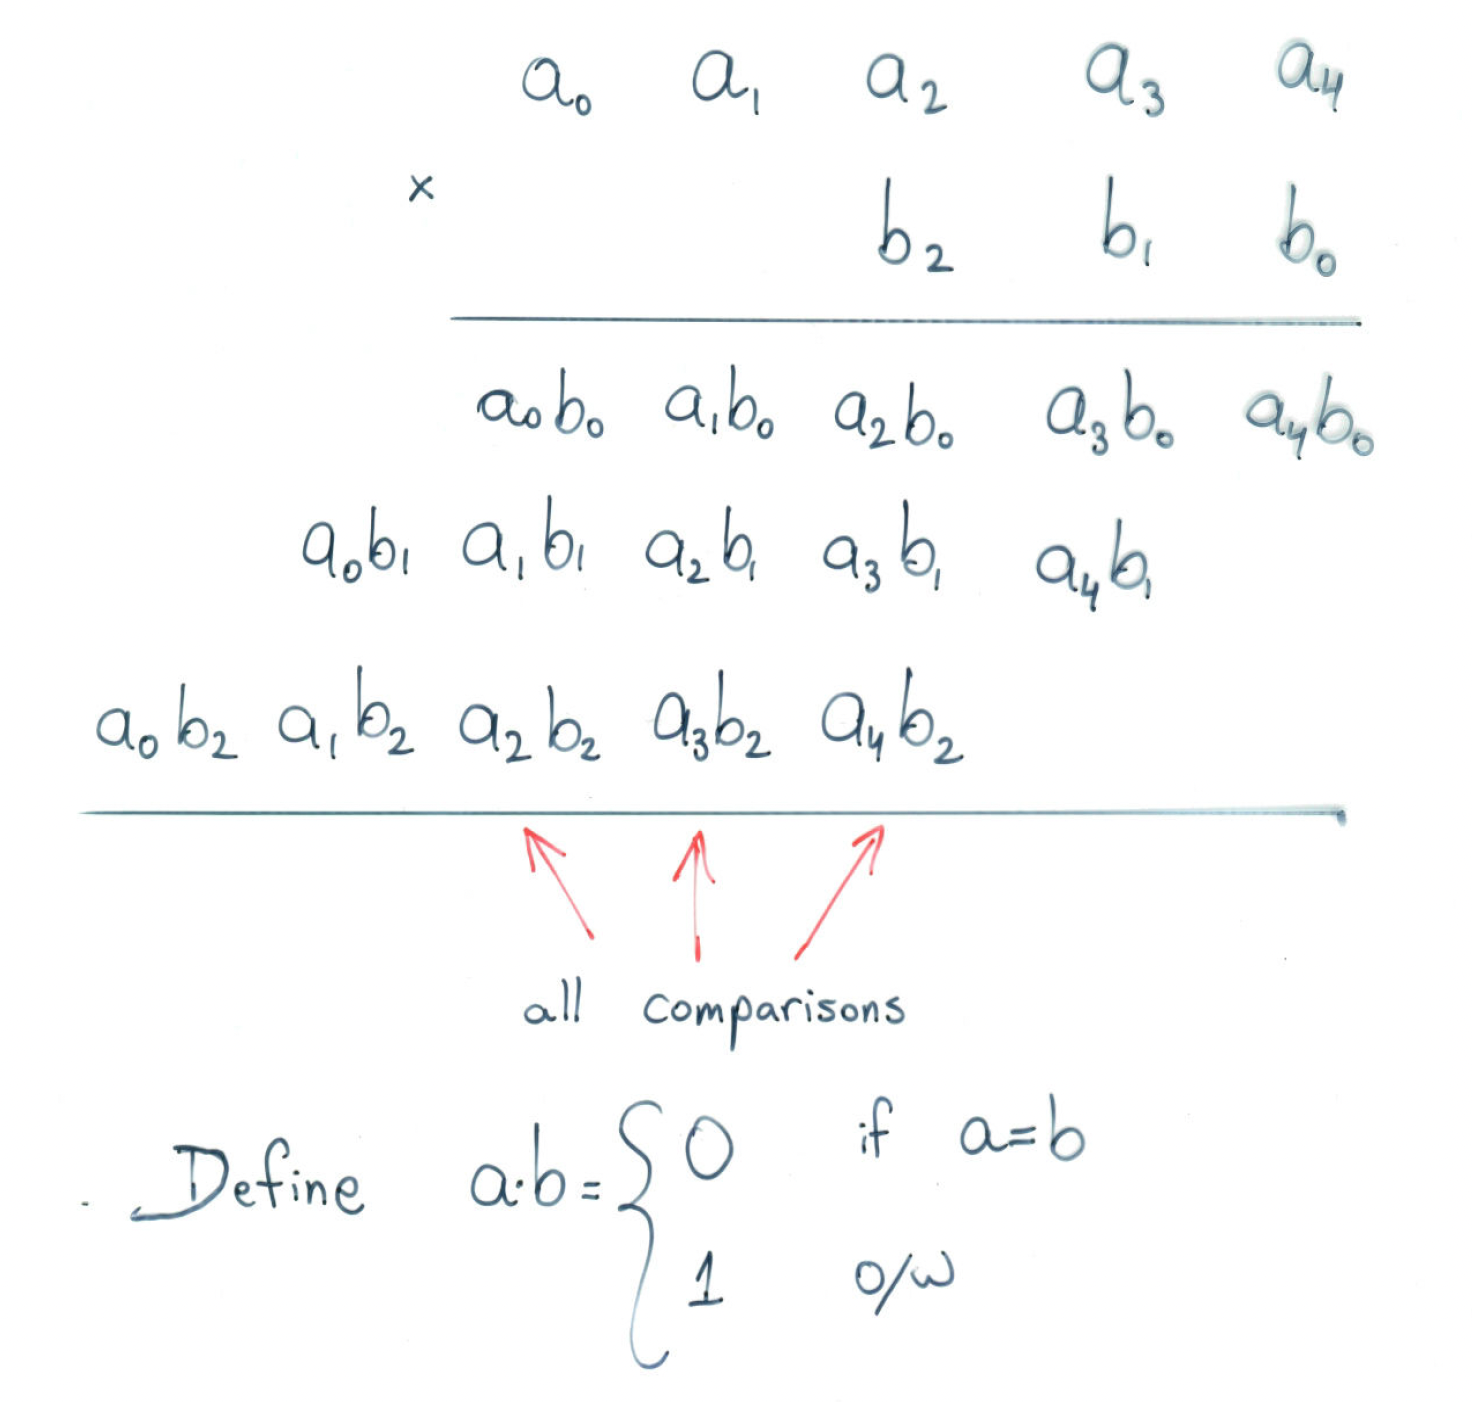 a₀ a₁ a₂ a₃ a₄
× b₂ b₁ b₀
a₀b₀ a₁b₀ a₂b₀ a₃b₀ a₄b₀
a₀b₁ a₁b₁ a₂b₁ a₃b₁ a₄b₁
a₀b₂ a₁b₂ a₂b₂ a₃b₂ a₄b₂
all comparisons
Define a·b = { 0 if a=b
1 o/w